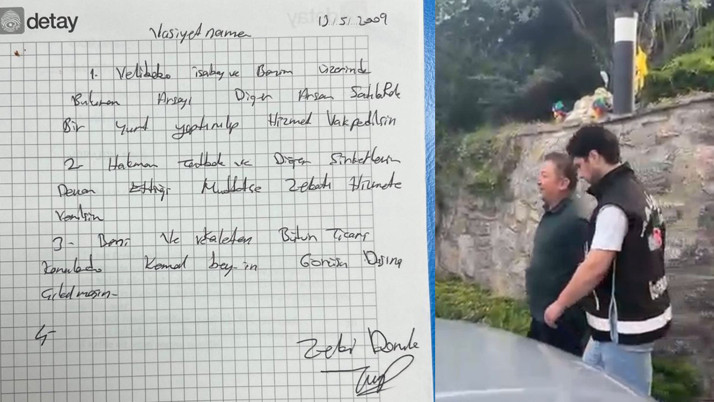 detay
19.5.2009
Vasiyetname
1. isabey ve Benim üzerinde
Bulunan Arsayı Diğer Arsan
Bir yurt yaptırılıp Hizmet Vakfedilsin
2 ve Diğer Şirketlerin
Devam Ettiği Müddetçe Zekatı Hizmete
Verilsin
3- Beni Ve Vekaleten Bütün Ticari
Konularda Kemal bey-in Görüşü Dışına
Çıkılmasın-
4-
Zeki